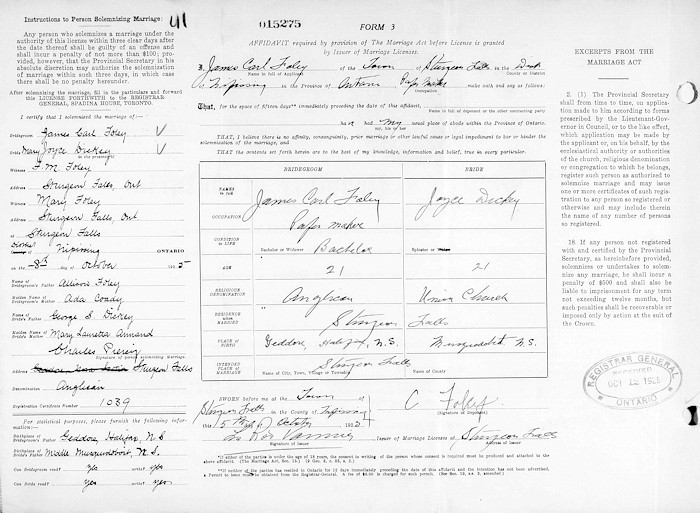 Instructions to Person Solemnizing Marriage:
41
Any person who solemnizes a marriage under the
authority of this license within three clear days after
the date thereof shall be guilty of an offense and
shall incur a penalty of not more than $100; pro-
vided, however, that the Provincial Secretary in his
absolute discretion may authorise the solemnization
of marriage within such three days, in which case
there shall be no penalty hereunder.
After solemnizing marriage, fill in the particulars and forward
this LICENSE FORTHWITH to the REGISTRAR-
GENERAL, SPADINA HOUSE, TORONTO.
I certify that I solemnized the marriage of:
Bridegroom James Carl Foley
Bride Mary Joyce Dickey
in the presence of
Witness F. M. Foley
Address Sturgeon Falls, Ont
Witness Mary Foley
Address Sturgeon Falls, Ont
at Sturgeon Falls
District Nipissing ONTARIO
on the 8th day of October 1925
Name of Bridegroom's Father Allison Foley
Maiden Name of Bridegroom's Mother Ada Conady
Name of Bride's Father George S. Dickey
Maiden Name of Bride's Mother Mary Lauretta Armand
Charles
Signature of person solemnizing Marriage.
Address Sturgeon Falls
Denomination Anglican
Registration Certificate Number 1039
For statistical purposes, please furnish the following
information:—
Birthplace of Bridegroom's Father Geddore, Halifax, N.S
Birthplace of Bride's Father Middle Musquodoboit, N.S.
Can Bridegroom read? Yes write? yes
Can Bride read? yes write? yes
015275
FORM 3
AFFIDAVIT required by provision of The Marriage Act before License is granted
by Issuer of Marriage Licenses.
I, James Carl Foley of the Town of Sturgeon Falls in the Dist
Name in full of Applicant County or District
of Nipissing in the Province of Ontario Paper Maker make oath and say as follows:
Occupation
That, for the space of fifteen days** immediately preceding the date of this affidavit,
Name in full of deponent or the other contracting party
had my usual place of abode within the Province of Ontario.
my, his or her
THAT, I believe there is no affinity, consanguinity, prior marriage or other lawful cause or legal impediment to bar or hinder the
solemnization of the marriage, and
THAT the contents set forth herein are to the best of my knowledge, information and belief, true in every particular.
BRIDEGROOM BRIDE
NAMES IN FULL James Carl Foley Joyce Dickey
OCCUPATION Paper maker
CONDITION IN LIFE Bachelor or Widower Bachelor Spinster or
AGE 21 21
RELIGIOUS DENOMINATION Anglican Union Church
RESIDENCE WHEN MARRIED Sturgeon Falls
PLACE OF BIRTH Geddore, Halifax, N.S. Musquodoboit N.S.
INTENDED PLACE OF MARRIAGE Sturgeon Falls
Name of City, Town, Village or Township
SWORN before me at the Town of
Sturgeon Falls in the County of Nipissing
this 5 day of October 1925
C Foley
(Signature of Deponent)
Signature of Issuer
Issuer of Marriage Licenses at Sturgeon Falls
Address of Issuer
*If either of the parties is under the age of 18 years, the consent in writing of the person whose consent is required must be produced and attached to the
above affidavit.
EXCERPTS FROM THE
MARRIAGE ACT
2. (1) The Provincial Secretary
shall from time to time, on applica-
tion made to him according to forms
prescribed by the Lieutenant-Gover-
nor in Council, or to the like effect,
which application may be made by
the applicant or, on his behalf, by the
ecclesiastical authority or authorities
of the church, religious denomination
or congregation to which he belongs,
register such person as authorized to
solemnize marriage and may issue
one or more certificates of such regis-
tration to any person so registered or
otherwise and may include therein
the name of any number of persons
so registered.
18. If any person not registered
and certified by the Provincial
Secretary, as hereinbefore provided,
solemnizes or undertakes to solem-
nize any marriage, he shall incur a
penalty of $500 and shall also be
liable to imprisonment for any term
not exceeding twelve months, but
such penalties shall be recoverable or
imposed only by action at the suit of
the Crown.
REGISTRAR GENERAL
RECEIVED
OCT 12 1925
ONTARIO